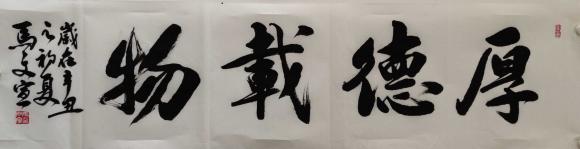 厚德載物
歲在辛丑
之初夏
馬文宣